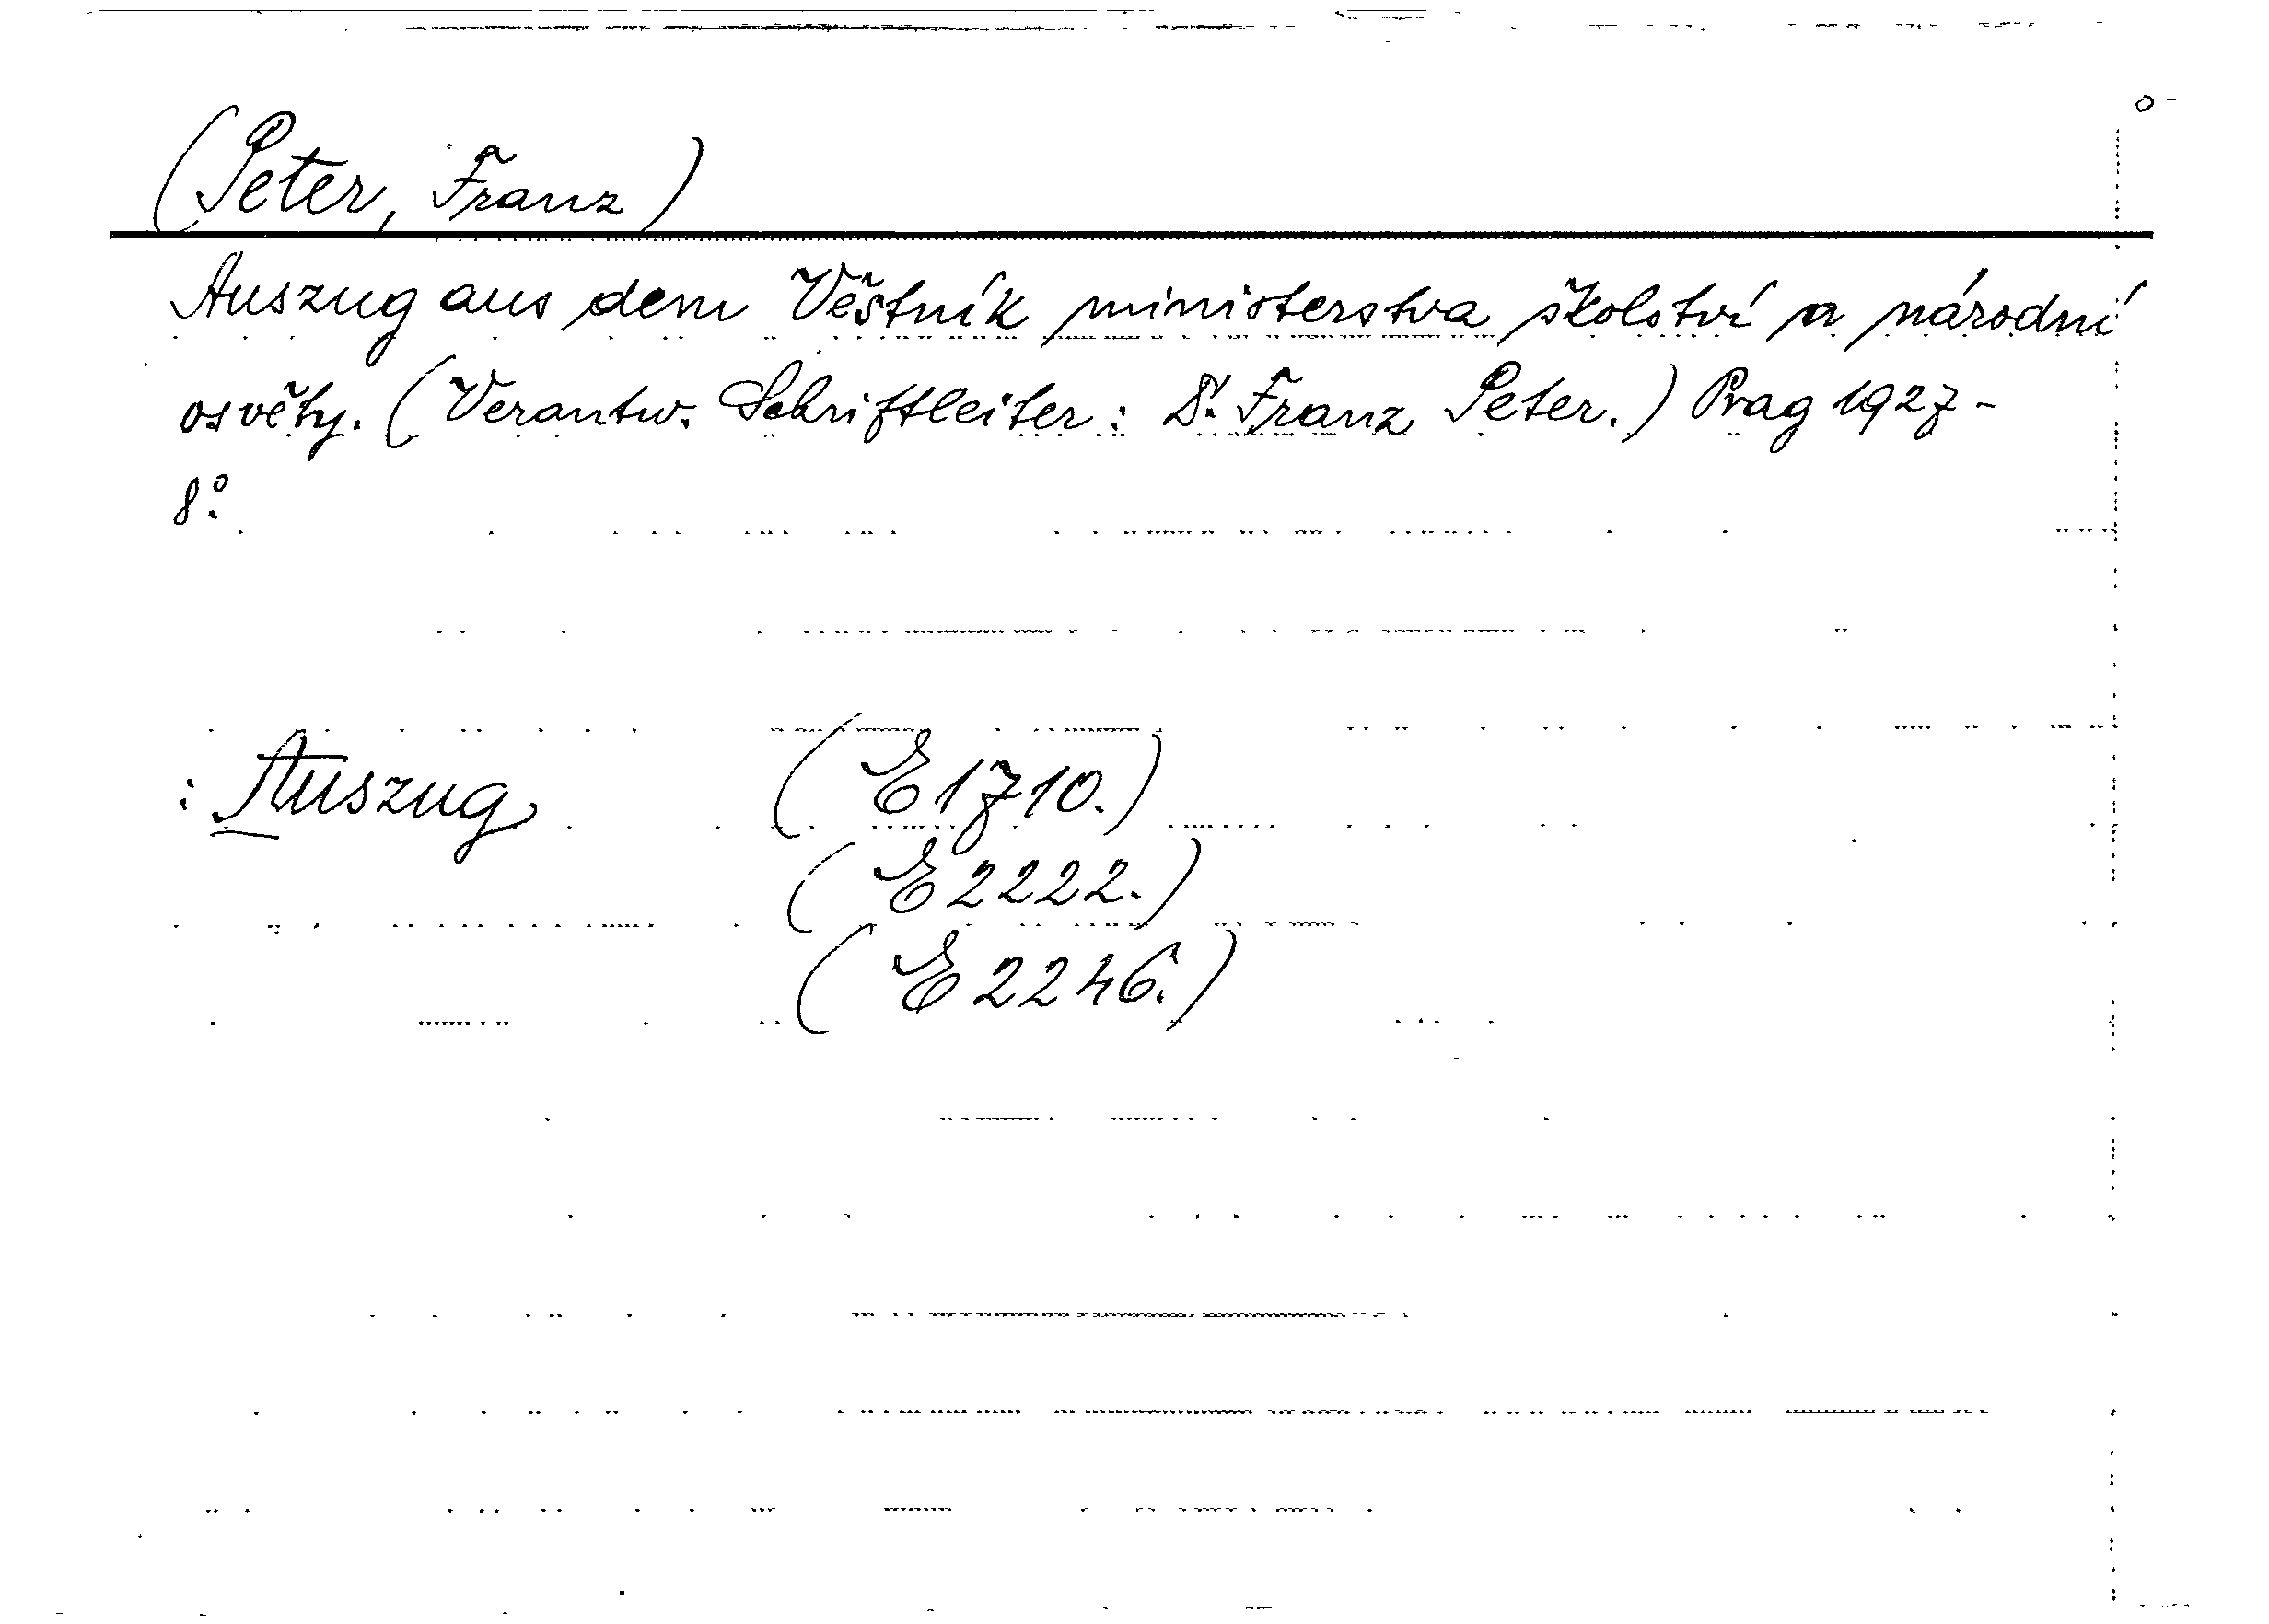 (Peter, Franz)
Auszug aus dem Věštník ministerstva školství a národní
osvěty. (Verantw. Schriftleiter: Dr. Franz Peter.) Prag 1927-
8°.
: Auszug (E 1710.)
(E 2222.)
(E 2246.)